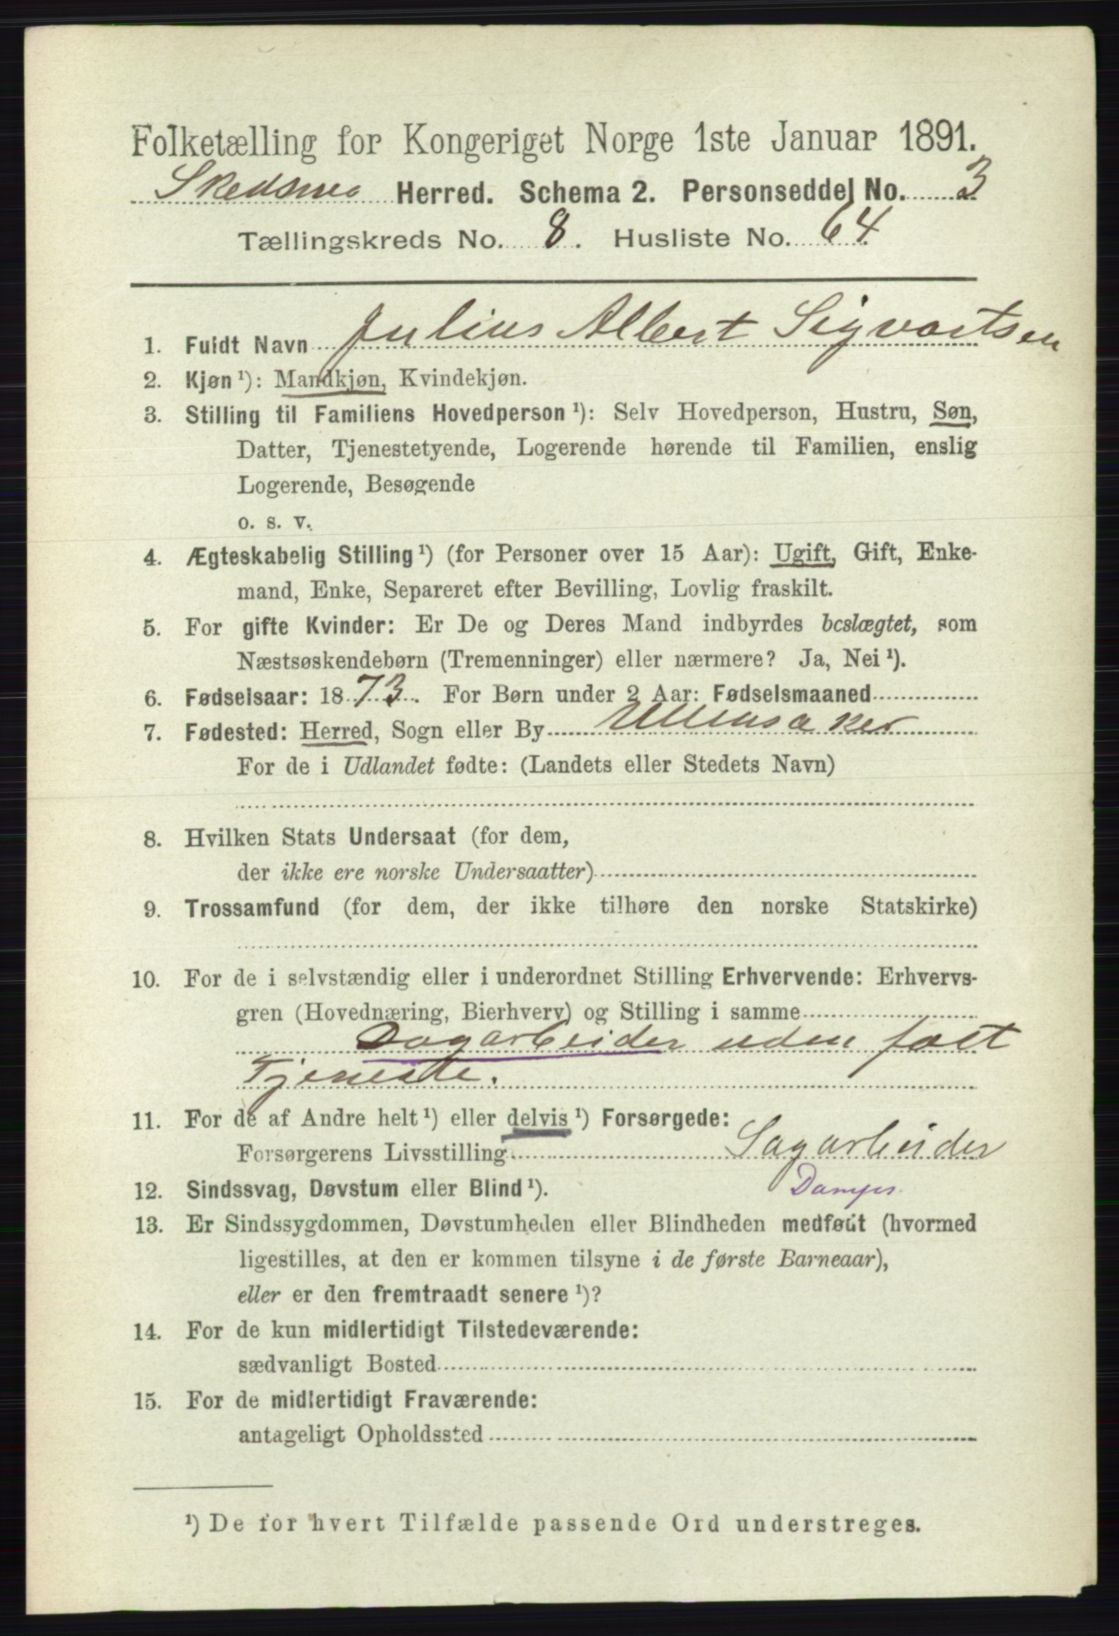 Folketælling for Kongeriget Norge 1ste Januar 1891.
Skedsmo Herred. Schema 2. Personseddel No. 3
Tællingskreds No. 8. Husliste No. 64
1. Fuldt Navn Julius Albert Sigvartsen
2. Kjøn ¹): Mandkjøn, Kvindekjøn.
3. Stilling til Familiens Hovedperson ¹): Selv Hovedperson, Hustru, Søn,
Datter, Tjenestetyende, Logerende hørende til Familien, enslig
Logerende, Besøgende
o. s. v.
4. Ægteskabelig Stilling ¹) (for Personer over 15 Aar): Ugift, Gift, Enke-
mand, Enke, Separeret efter Bevilling, Lovlig fraskilt.
5. For gifte Kvinder: Er De og Deres Mand indbyrdes beslægtet, som
Næstsøskendebørn (Tremenninger) eller nærmere? Ja, Nei ¹).
6. Fødselsaar: 1873. For Børn under 2 Aar: Fødselsmaaned
7. Fødested: Herred, Sogn eller By Ullensaker
For de i Udlandet fødte: (Landets eller Stedets Navn)
8. Hvilken Stats Undersaat (for dem,
der ikke ere norske Undersaatter)
9. Trossamfund (for dem, der ikke tilhøre den norske Statskirke)
10. For de i selvstændig eller i underordnet Stilling Erhvervende: Erhvervs-
gren (Hovednæring, Bierhverv) og Stilling i samme
Dagarbeider uden fast
Tjeneste.
11. For de af Andre helt ¹) eller delvis ¹) Forsørgede:
Forsørgerens Livsstilling Sagarbeider
12. Sindssvag, Døvstum eller Blind ¹). Damps.
13. Er Sindssygdommen, Døvstumheden eller Blindheden medfødt (hvormed
ligestilles, at den er kommen tilsyne i de første Barneaar),
eller er den fremtraadt senere ¹)?
14. For de kun midlertidigt Tilstedeværende:
sædvanligt Bosted
15. For de midlertidigt Fraværende:
antageligt Opholdssted
¹) De for hvert Tilfælde passende Ord understreges.